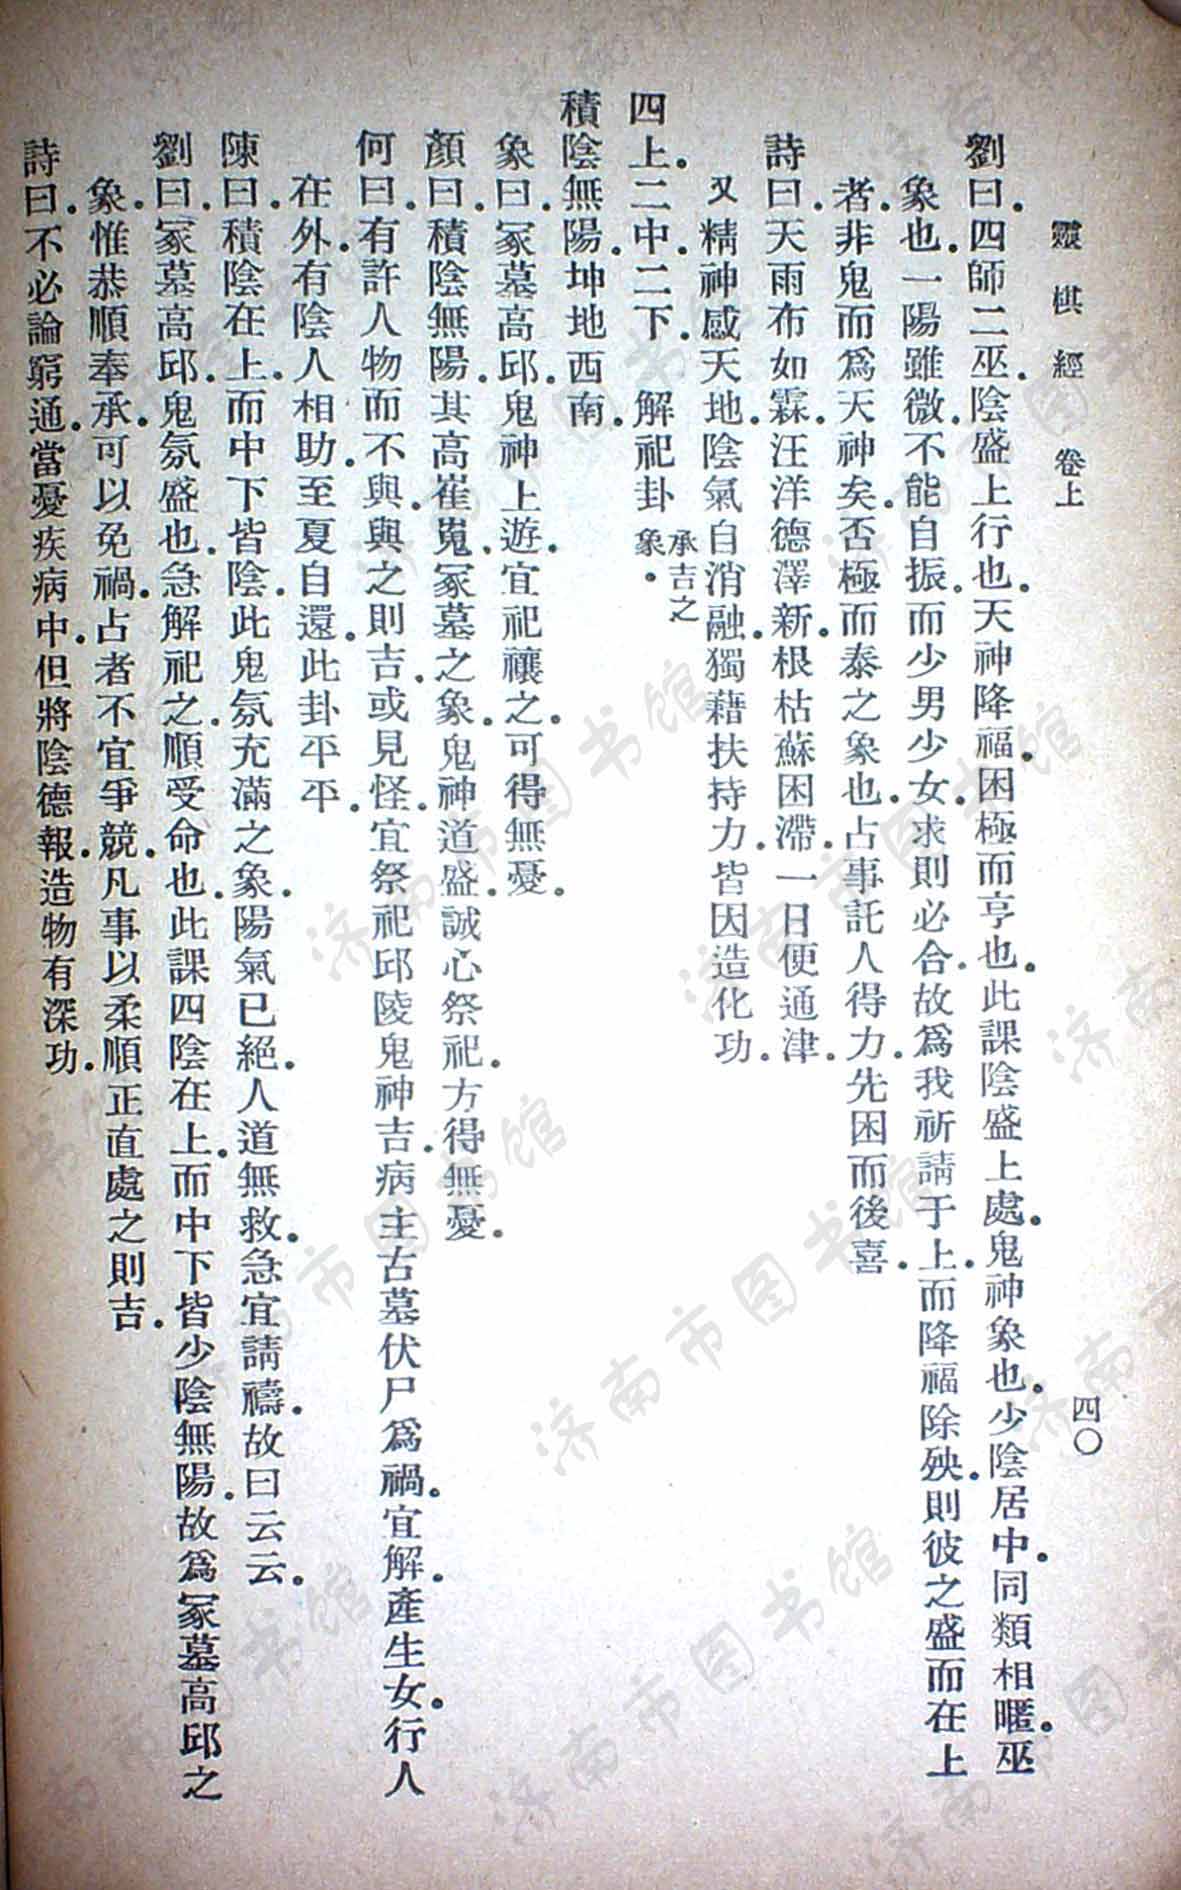 靈棋經 卷上 四〇
劉曰.四師二巫.陰盛上行也.天神降福.困極而亨也.此課陰盛上處.鬼神象也.少陰居中.同類相暱.巫
象也.一陽雖微.不能自振.而少男少女.求則必合.故爲我祈請于上.而降福除殃.則彼之盛而在上
者.非鬼而爲天神矣.否極而泰之象也.占事託人得力.先困而後喜.
詩曰.天雨布如霖.汪洋德澤新.根枯蘇困滯.一日便通津.
又 精神感天地.陰氣自消融.獨藉扶持力.皆因造化功.
四上.二中.二下. 解祀卦 承吉之象.
積陰無陽.坤地西南.
象曰.冢墓高邱.鬼神上遊.宜祀禳之.可得無憂.
顏曰.積陰無陽.其高崔嵬.冢墓之象.鬼神道盛.誠心祭祀.方得無憂.
何曰.有許人物而不與.與之則吉.或見怪.宜祭祀邱陵鬼神吉.病主古墓伏尸爲禍.宜解.產生女.行人
在外.有陰人相助.至夏自還.此卦平平.
陳曰.積陰在上.而中下皆陰.此鬼氛充滿之象.陽氣已絕.人道無救.急宜請禱.故曰云云.
劉曰.冢墓高邱.鬼氛盛也.急解祀之.順受命也.此課四陰在上.而中下皆少陰無陽.故爲冢墓高邱之
象.惟恭順奉承.可以免禍.占者不宜爭競.凡事以柔順正直處之則吉.
詩曰.不必論窮通.當憂疾病中.但將陰德報.造物有深功.
济南市图书馆